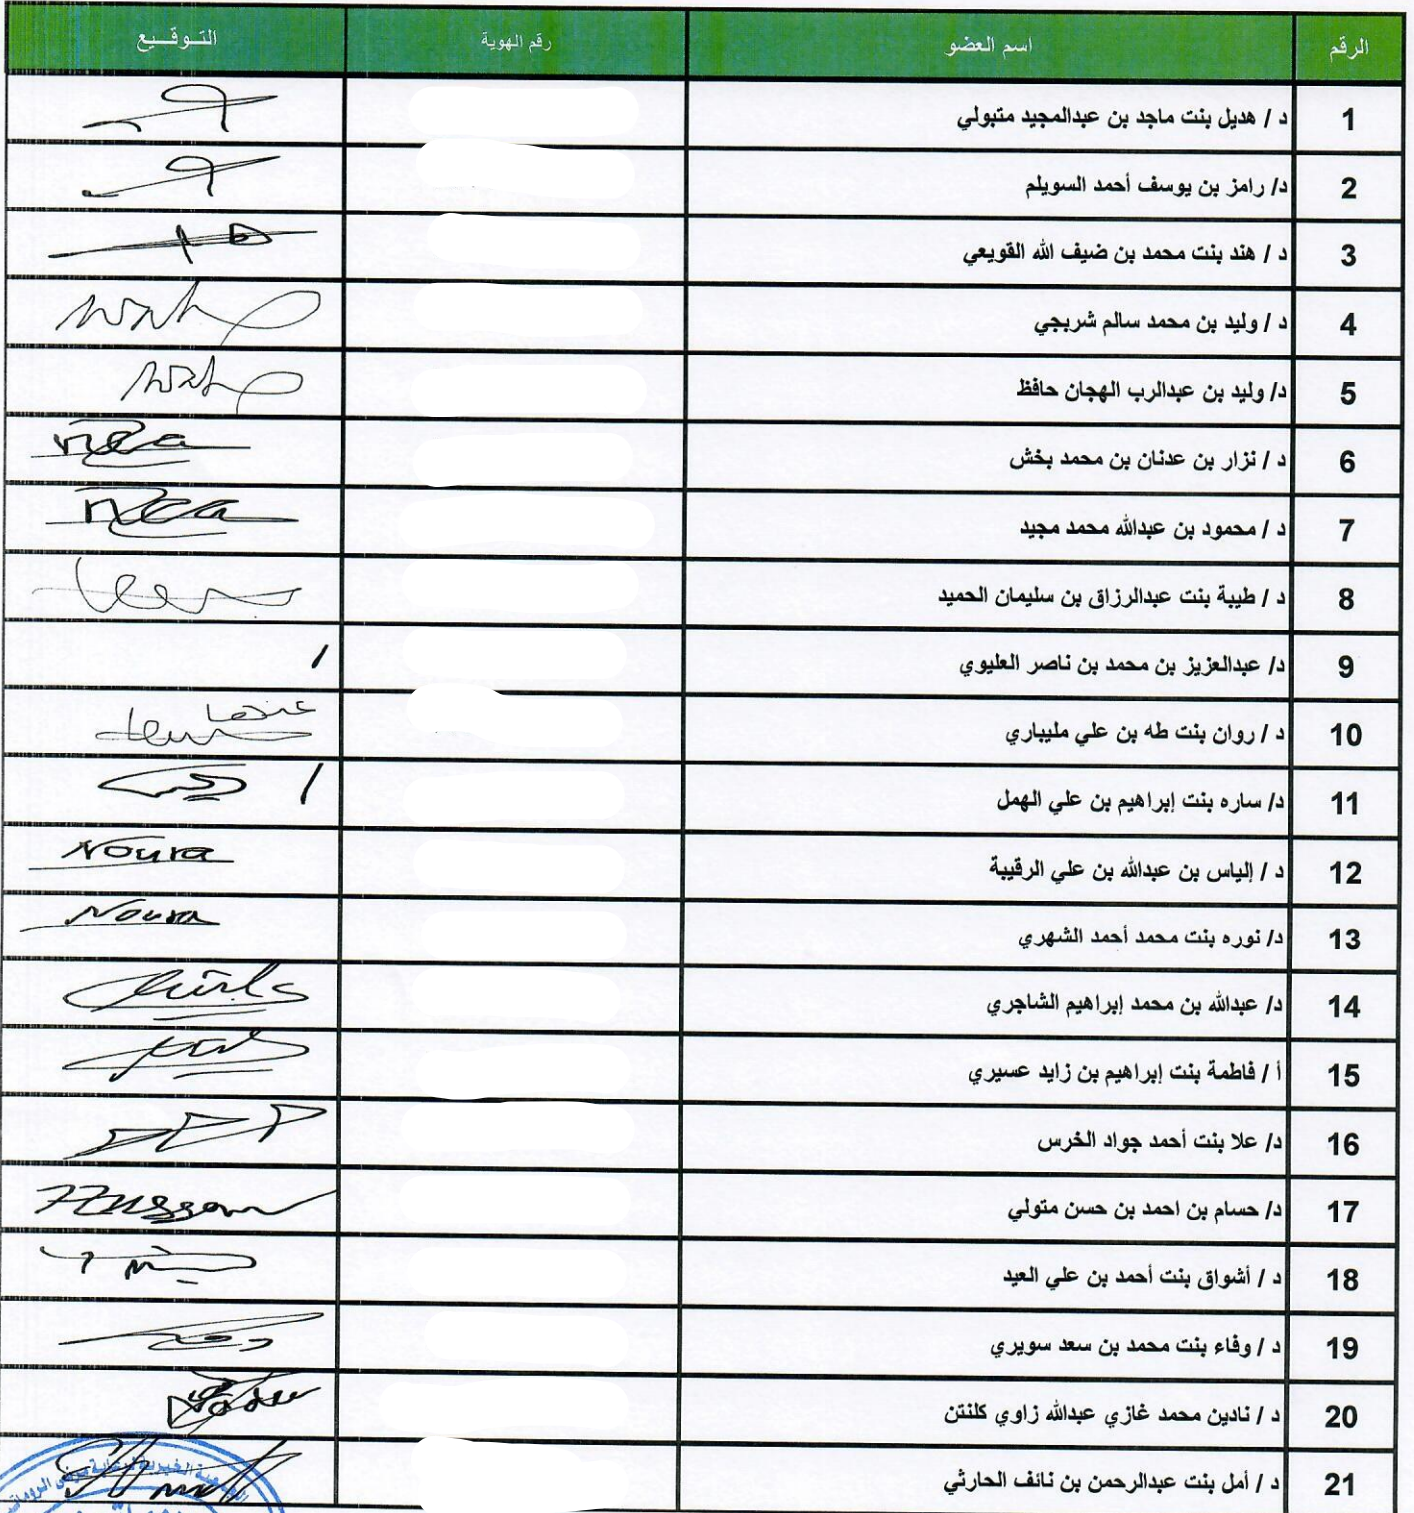 الرقم اسم العضو رقم الهوية التوقيع
1 د / هديل بنت ماجد بن عبدالمجيد متبولي
2 د/ رامز بن يوسف أحمد السويلم
3 د / هند بنت محمد بن ضيف الله القويعي
4 د / وليد بن محمد سالم شربجي
5 د/ وليد بن عبدالرب الهجان حافظ
6 د / نزار بن عدنان بن محمد بخش
7 د / محمود بن عبدالله محمد مجيد
8 د / طيبة بنت عبدالرزاق بن سليمان الحميد
9 د/ عبدالعزيز بن محمد بن ناصر العليوي
10 د / روان بنت طه بن علي مليباري
11 د/ ساره بنت إبراهيم بن علي الهمل
12 د / إلياس بن عبدالله بن علي الرقيبة Noura
13 د/ نوره بنت محمد أحمد الشهري Noura
14 د/ عبدالله بن محمد إبراهيم الشاجري
15 أ / فاطمة بنت إبراهيم بن زايد عسيري
16 د/ علا بنت أحمد جواد الخرس
17 د/ حسام بن احمد بن حسن متولي
18 د / أشواق بنت أحمد بن علي العيد
19 د / وفاء بنت محمد بن سعد سويري
20 د / نادين محمد غازي عبدالله زاوي كلنتن
21 د / أمل بنت عبدالرحمن بن نائف الحارثي
الخيرية لرعاية مرضى